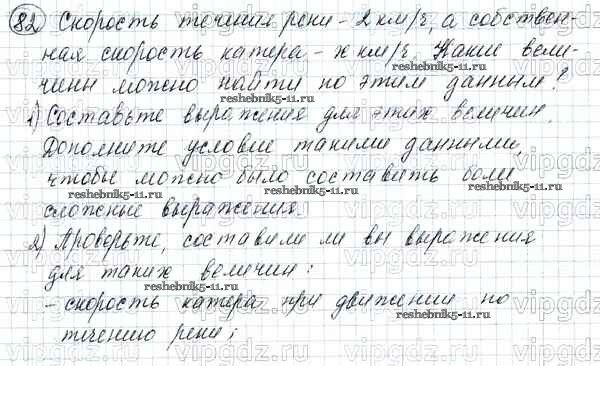 82 Скорость течения реки - 2 км/ч, а собствен-
ная скорость катера - x км/ч. Какие вели-
чины можно найти по этим данным?
reshebnik5-11.ru
1) Составьте выражения для этих величин.
Дополните условие такими данными,
reshebnik5-11.ru
чтобы можно было составить боле
reshebnik5-11.ru
сложные выражения.
2) Проверьте, составили ли вы выражения
для таких величин:
reshebnik5-11.ru
- скорость катера при движении по
reshebnik5-11.ru
течению реки;
vipgdz.ru vipgdz.ru vipgdz.ru